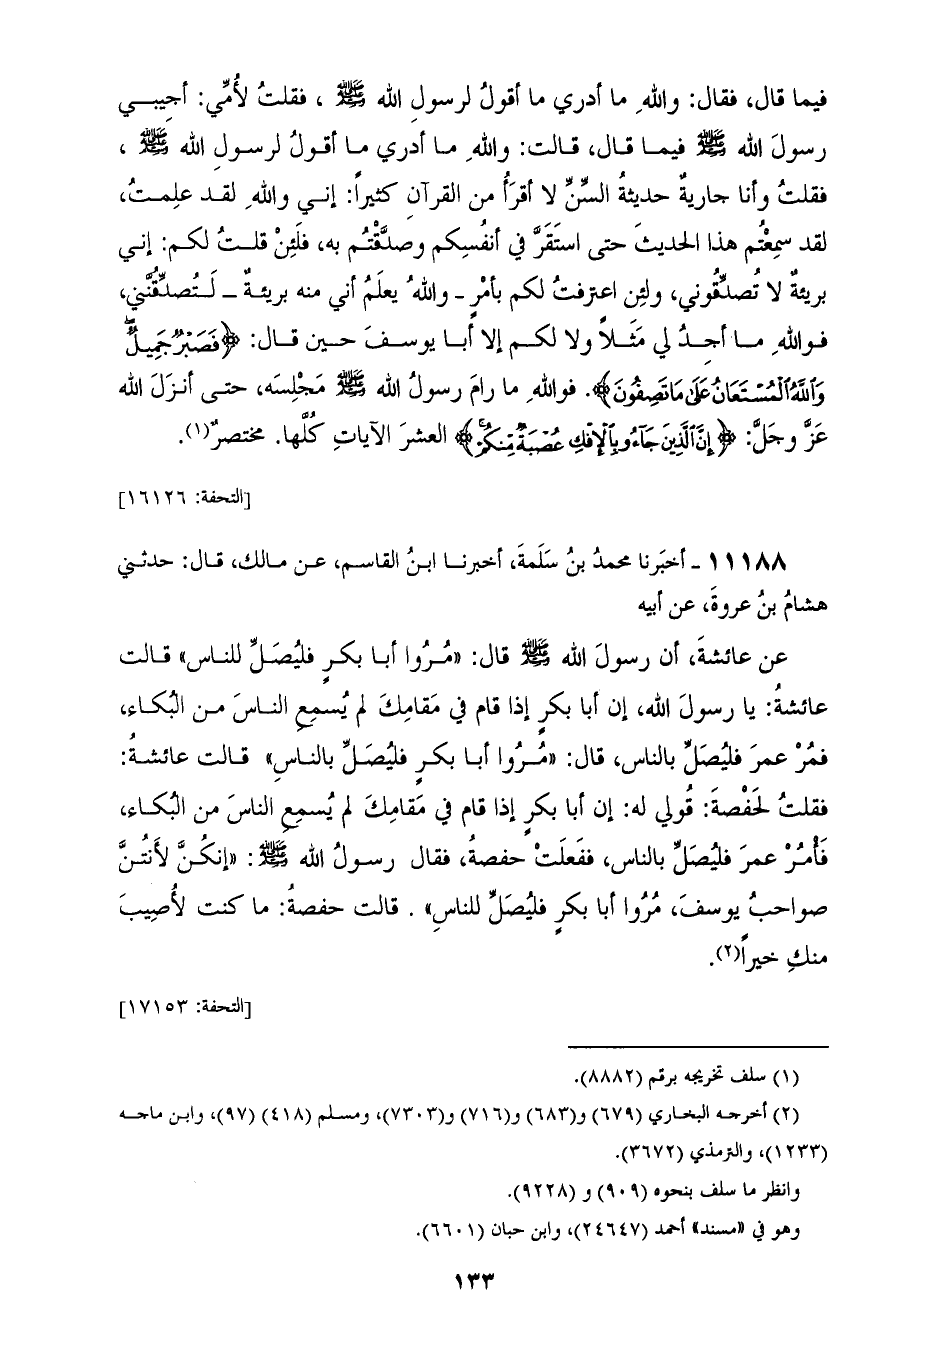 فيما قال، فقال: واللهِ ما أدري ما أقولُ لرسولِ الله ﷺ ، فقلتُ لأُمِّي: أجيبي
رسولَ الله ﷺ فيما قال، قالت: واللهِ ما أدري ما أقولُ لرسولِ الله ﷺ ،
فقلتُ وأنا جاريةٌ حديثةُ السِّنِّ لا أقرَأُ من القرآنِ كثيراً: إني واللهِ لقد علِمتُ،
لقد سمِعْتُم هذا الحديثَ حتى استَقَرَّ في أنفُسِكم وصدَّقْتُم به، فلَئِنْ قلتُ لكم: إني
بريئةٌ لا تُصدِّقُوني، ولئِن اعترفتُ لكم بأمْرٍ ـ واللهُ يعلَمُ أني منه بريئةٌ ـ لَتُصدِّقُنَّني،
فواللهِ ما أجدُ لي مَثَلاً ولا لكم إلا أبا يوسفَ حين قال: ﴿فَصَبْرٌ جَمِيلٌ ۖ
وَٱللَّهُ ٱلْمُسْتَعَانُ عَلَىٰ مَا تَصِفُونَ﴾. فواللهِ ما رامَ رسولُ الله ﷺ مَجْلِسَه، حتى أنزَلَ الله
عَزَّ وجَلَّ: ﴿إِنَّ ٱلَّذِينَ جَآءُو بِٱلْإِفْكِ عُصْبَةٌ مِّنكُمْ ۚ﴾ العشرَ الآياتِ كُلَّها. مختصرٌ(١).
[التحفة: ١٦١٢٦]
١١١٨٨ ـ أخبَرنا محمدُ بنُ سَلَمةَ، أخبرنا ابنُ القاسم، عن مالك، قال: حدثني
هشامُ بنُ عروةَ، عن أبيه
عن عائشةَ، أن رسولَ الله ﷺ قال: «مُرُوا أبا بكرٍ فليُصَلِّ للناس» قالت
عائشةُ: يا رسولَ الله، إن أبا بكرٍ إذا قام في مَقامِكَ لم يُسمِعِ الناسَ من البُكاء،
فمُرْ عمرَ فليُصَلِّ بالناس، قال: «مُرُوا أبا بكرٍ فليُصَلِّ بالناسِ» قالت عائشةُ:
فقلتُ لحَفْصةَ: قُولي له: إن أبا بكرٍ إذا قام في مَقامِكَ لم يُسمِعِ الناسَ من البُكاء،
فَأْمُرْ عمرَ فليُصَلِّ بالناس، ففَعلَتْ حفصةُ، فقال رسولُ الله ﷺ: «إنكُنَّ لأَنتُنَّ
صواحبُ يوسفَ، مُرُوا أبا بكرٍ فليُصَلِّ للناسِ» . قالت حفصةُ: ما كنت لأُصِيبَ
منكِ خيراً(٢).
[التحفة: ١٧١٥٣]
(١) سلف تخريجه برقم (٨٨٨٢).
(٢) أخرجه البخاري (٦٧٩) و(٦٨٣) و(٧١٦) و(٧٣٠٣)، ومسلم (٤١٨) (٩٧)، وابن ماجه
(١٢٣٣)، والترمذي (٣٦٧٢).
وانظر ما سلف بنحوه (٩٠٩) و (٩٢٢٨).
وهو في «مسند» أحمد (٢٤٦٤٧)، وابن حبان (٦٦٠١).
١٣٣